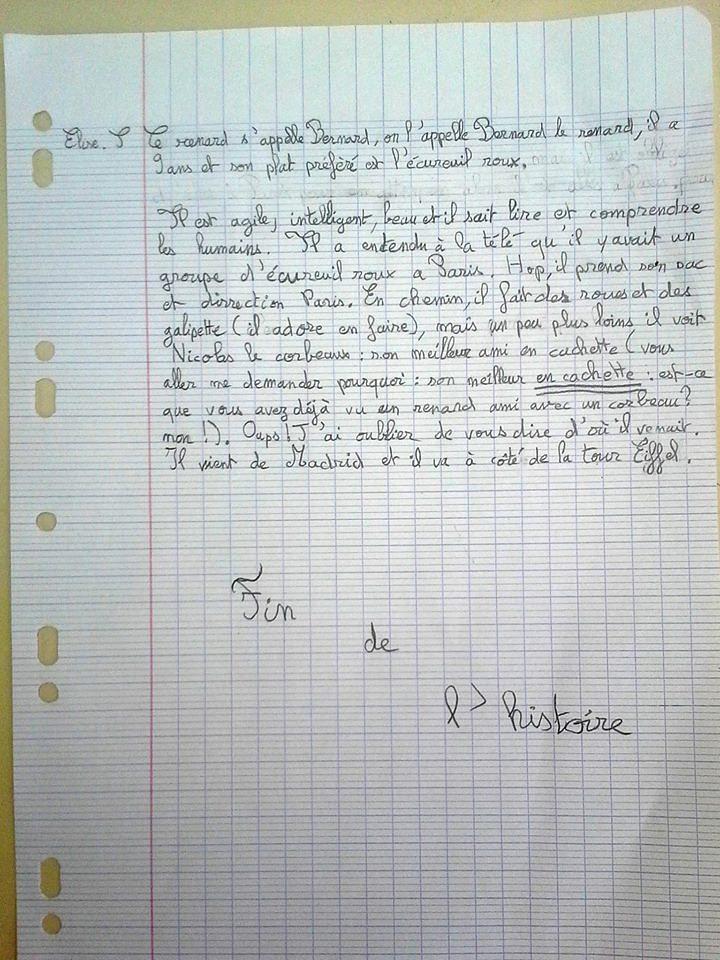 Elise. S Ce renard s'appelle Bernard, on l'appelle Bernard le renard, il a
9 ans et son plat préféré est l'écureuil roux.
Il est agile, intelligent, beau et il sait lire et comprendre
les humains. Il a entendu à la télé qu'il y avait un
groupe d'écureuil roux a Paris. Hop, il prend son sac
et dirrection Paris. En chemin, il fait des roues et des
galipette (il adore en faire), mais un peu plus loins il voit
Nicolas le corbeaux : son meilleur ami en cachette (vous
aller me demander pourquoi : son meilleur en cachette : est-ce
que vous avez déjà vu un renard ami avec un corbeau?
non !). Oups ! J'ai oublier de vous dire d'où il venait.
Il vient de Madrid et il va à côté de la tour Eiffel.
Fin
de
l'histoire